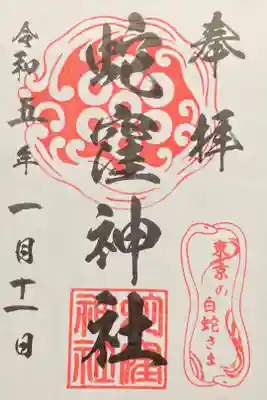 奉拝
蛇窪神社
令和五年
一月十一日
東京の
白蛇さま
蛇窪
神社